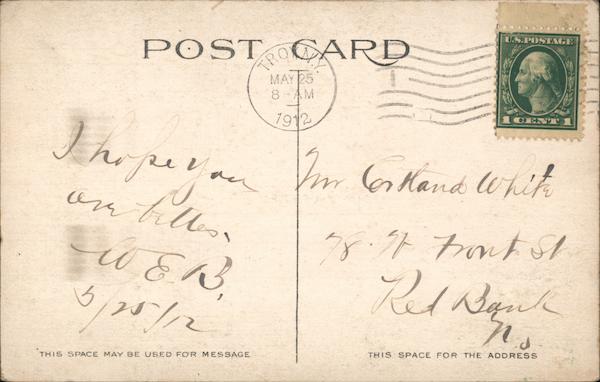 POST CARD
TROY, N.Y.
MAY 25
8-AM
1912
U.S. POSTAGE
1 CENT 1
I hope you
are better.
W. E. B.
5/25/12
Mr Cortland White
W. Front St
Red Bank
N. J.
THIS SPACE MAY BE USED FOR MESSAGE
THIS SPACE FOR THE ADDRESS